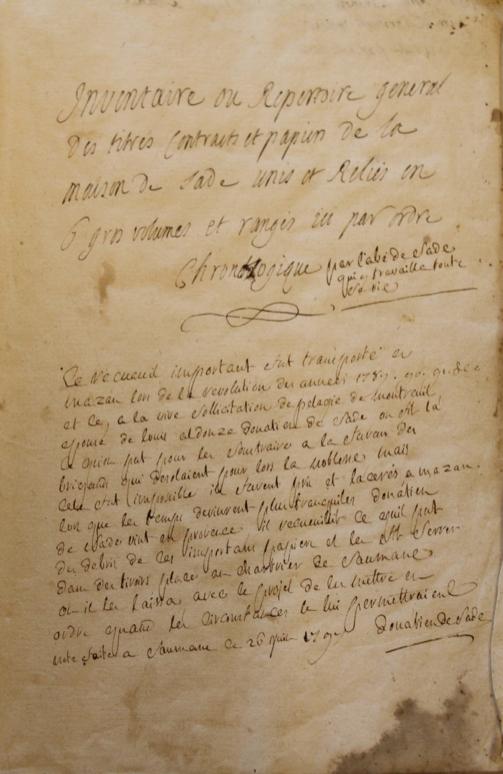 Inventaire ou Repertoire general
Des titres Contracts et papiers de la
maison de Sade unis et Reliés en
6 gros volumes et rangés ici par ordre
Chronologique par l'abé de Sade
qui y travailla toute
sa vie
Ce recueuil important fut transporté en
mazan lors de la revolution des années 1789. 90.
et ce, a la vive sollicitation de pelagie de montreuil
epouse de louis aldonze donatien de Sade ou fit la
ce quion put pour les soustraire a la fureur des
brigands qui desolaient pour lors la noblesse mais
Cela fut impossible ils furent pris et lacerés a mazan.
lors que les temps devinrent plus tranquiles donatien
de Sade vint en provence il recueuillit ce quil put
du debris de ces importans papiers et les fit serrer
dans des tiroirs placés au chartrier de Saumane
ou il les laissa avec le projet de les mettre en
ordre quand les circonstances le lui permettraient
note faite a Saumane ce 26 179
Donatien de Sade